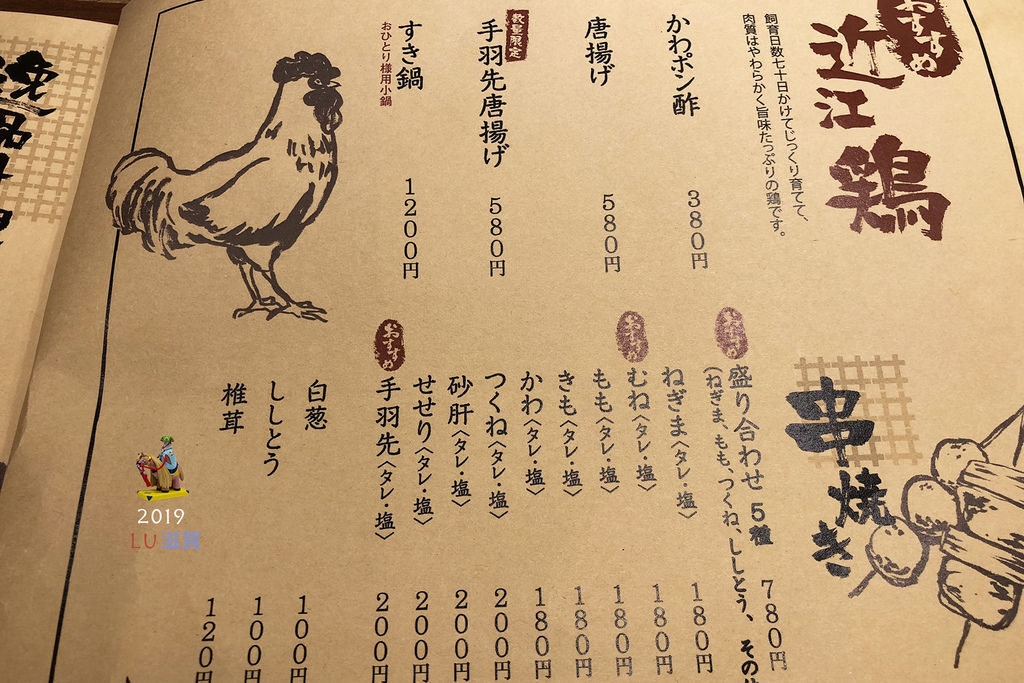 おすすめ
近江鶏
飼育日数七十日かけてじっくり育てて、
肉質はやわらかく旨味たっぷりの鶏です。
かわポン酢 380円
唐揚げ 580円
数量限定
手羽先唐揚げ 580円
すき鍋 1200円
おひとり様用小鍋
串焼き
おすすめ
盛り合わせ 5種 780円
(ねぎま、もも、つくね、ししとう、その
ねぎま〈タレ・塩〉 180円
おすすめ
むね〈タレ・塩〉 180円
もも〈タレ・塩〉 180円
きも〈タレ・塩〉 180円
かわ〈タレ・塩〉 180円
つくね〈タレ・塩〉 200円
砂肝〈タレ・塩〉 200円
せせり〈タレ・塩〉 200円
おすすめ
手羽先〈タレ・塩〉 200円
白葱 100円
ししとう 100円
椎茸 120円
2019
LU 滋賀